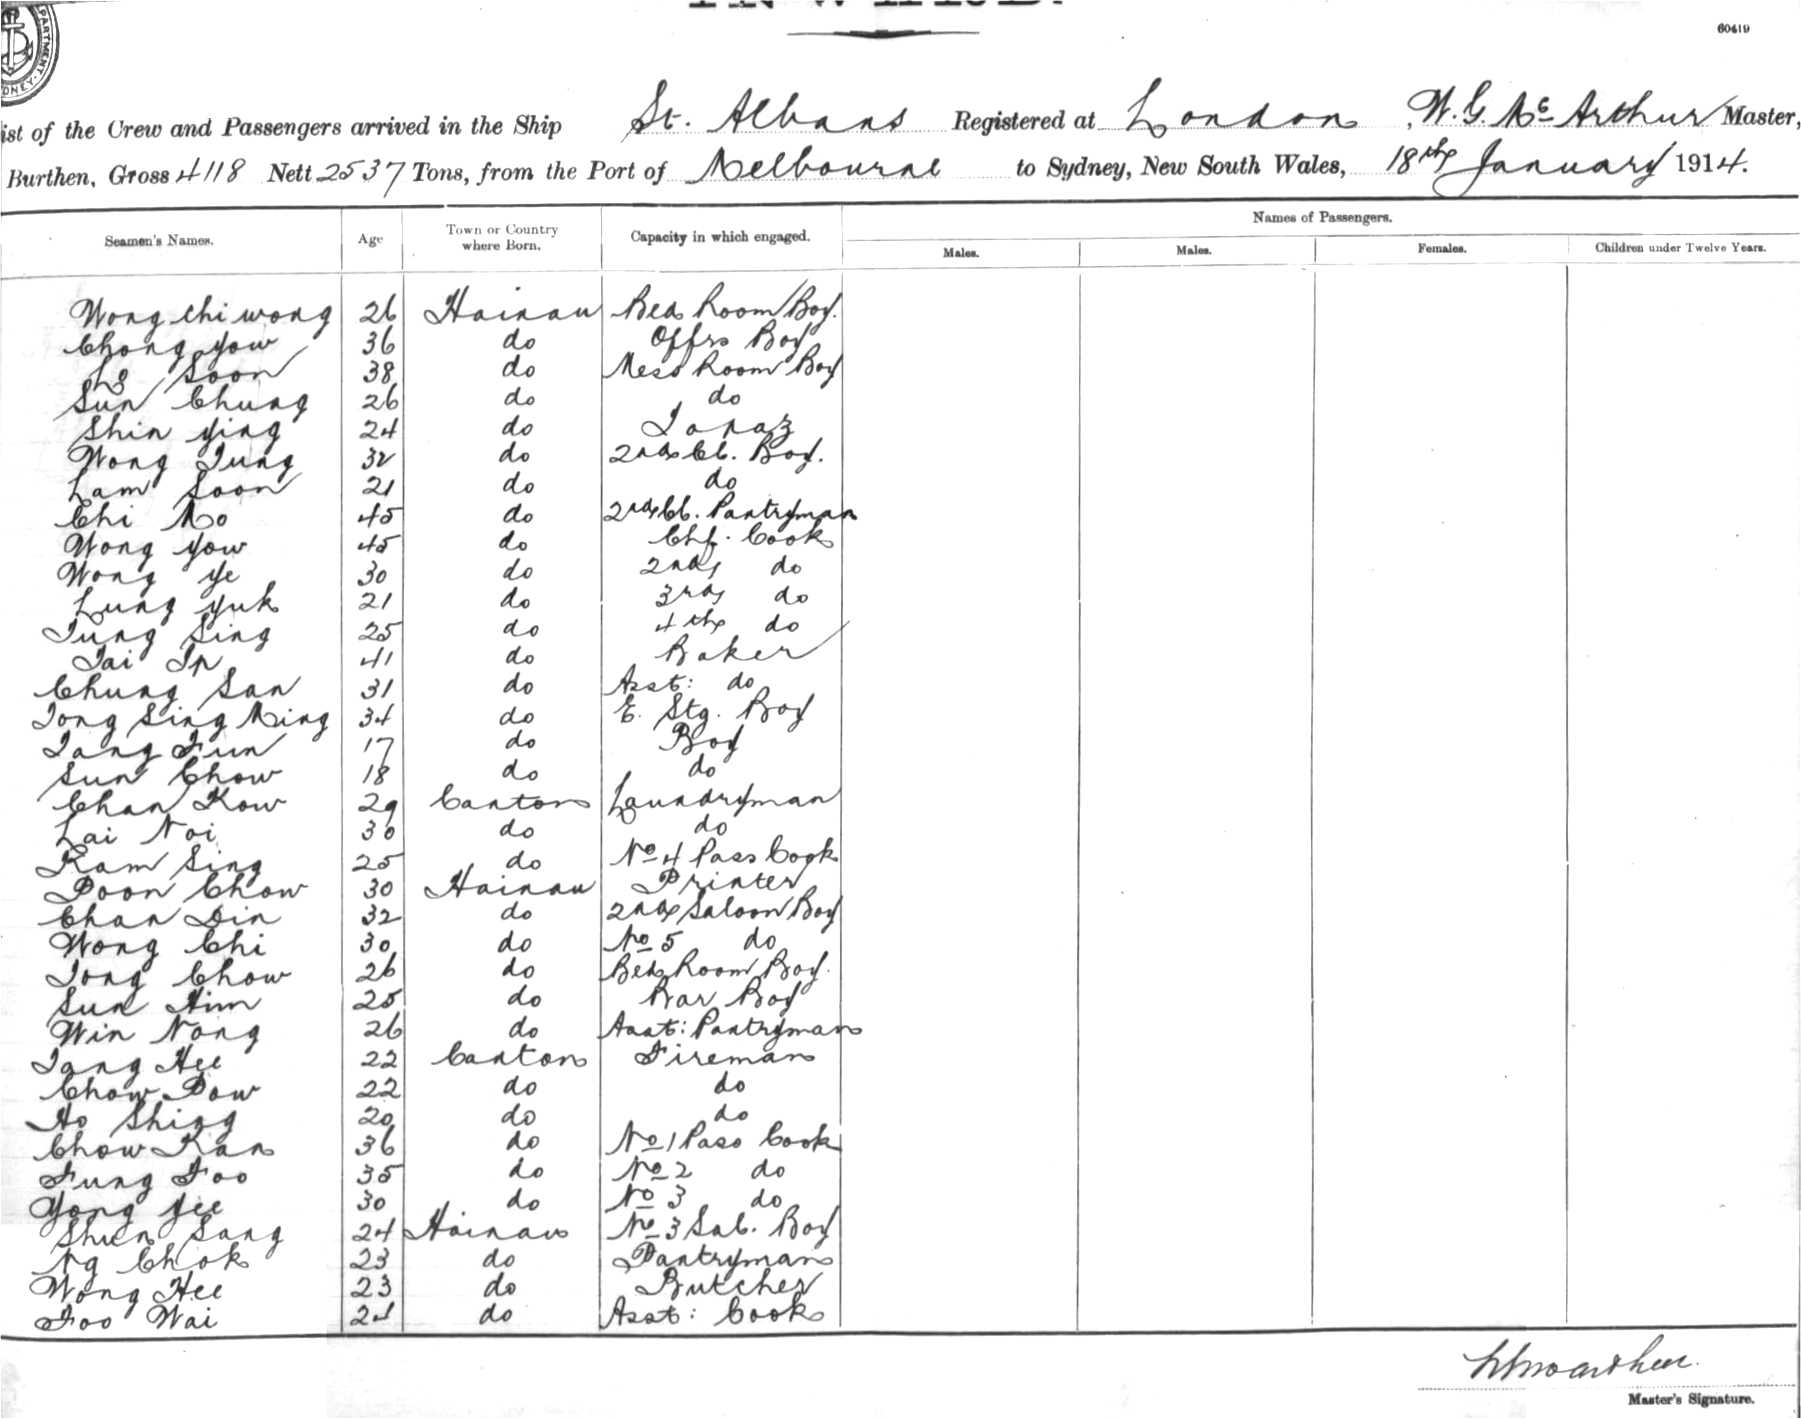 60419
ist of the Crew and Passengers arrived in the Ship St. Albans Registered at London, W. G. McArthur Master,
Burthen, Gross 4118 Nett 2537 Tons, from the Port of Melbourne to Sydney, New South Wales, 18th January 1914.
Names of Passengers.
Seamen's Names. Age Town or Country where Born. Capacity in which engaged. Males. Males. Females. Children under Twelve Years.
Wong Chi Wong 26 Hainan Bed Room Boy.
Chong Yow 36 do Offrs Boy
Soon 38 do Mess Room Boy
Sun Chung 26 do do
Shin Ying 24 do Topaz
Wong Tung 32 do 2nd Cl. Boy.
Lam Soon 21 do do
Chi Mo 45 do 2nd Cl. Pantryman
Wong Yow 45 do Chf. Cook
Wong Ye 30 do 2nd do
Lung Yuk 21 do 3rd do
Tung Sing 25 do 4th do
Tai Ip 41 do Baker
Chung San 31 do Asst: do
Tong Sing Ming 34 do E. Stg. Boy
Tang Fun 17 do Boy
Sun Chow 18 do do
Chan Kow 29 Canton Laundryman
Lai Noi 30 do do
Kam Sing 25 do No 4 Pass Cook
Poon Chow 30 Hainan Printer
Chan Din 32 do 2nd Saloon Boy
Wong Chi 30 do No 5 do
Tong Chow 26 do Bed Room Boy.
Sun Him 25 do Bar Boy
Win Nong 26 do Asst: Pantryman
Tang Hee 22 Canton Fireman
Chow Pow 22 do do
Ho Shing 20 do do
Chow Kan 36 do No 1 Pass Cook
Fung Foo 35 do No 2 do
Yong Yee 30 do No 3 do
Shen Sang 24 Hainan No 3 Sal. Boy
Ng Chok 23 do Pantryman
Wong Hee 23 do Butcher
Foo Wai 21 do Asst: Cook
Master's Signature.